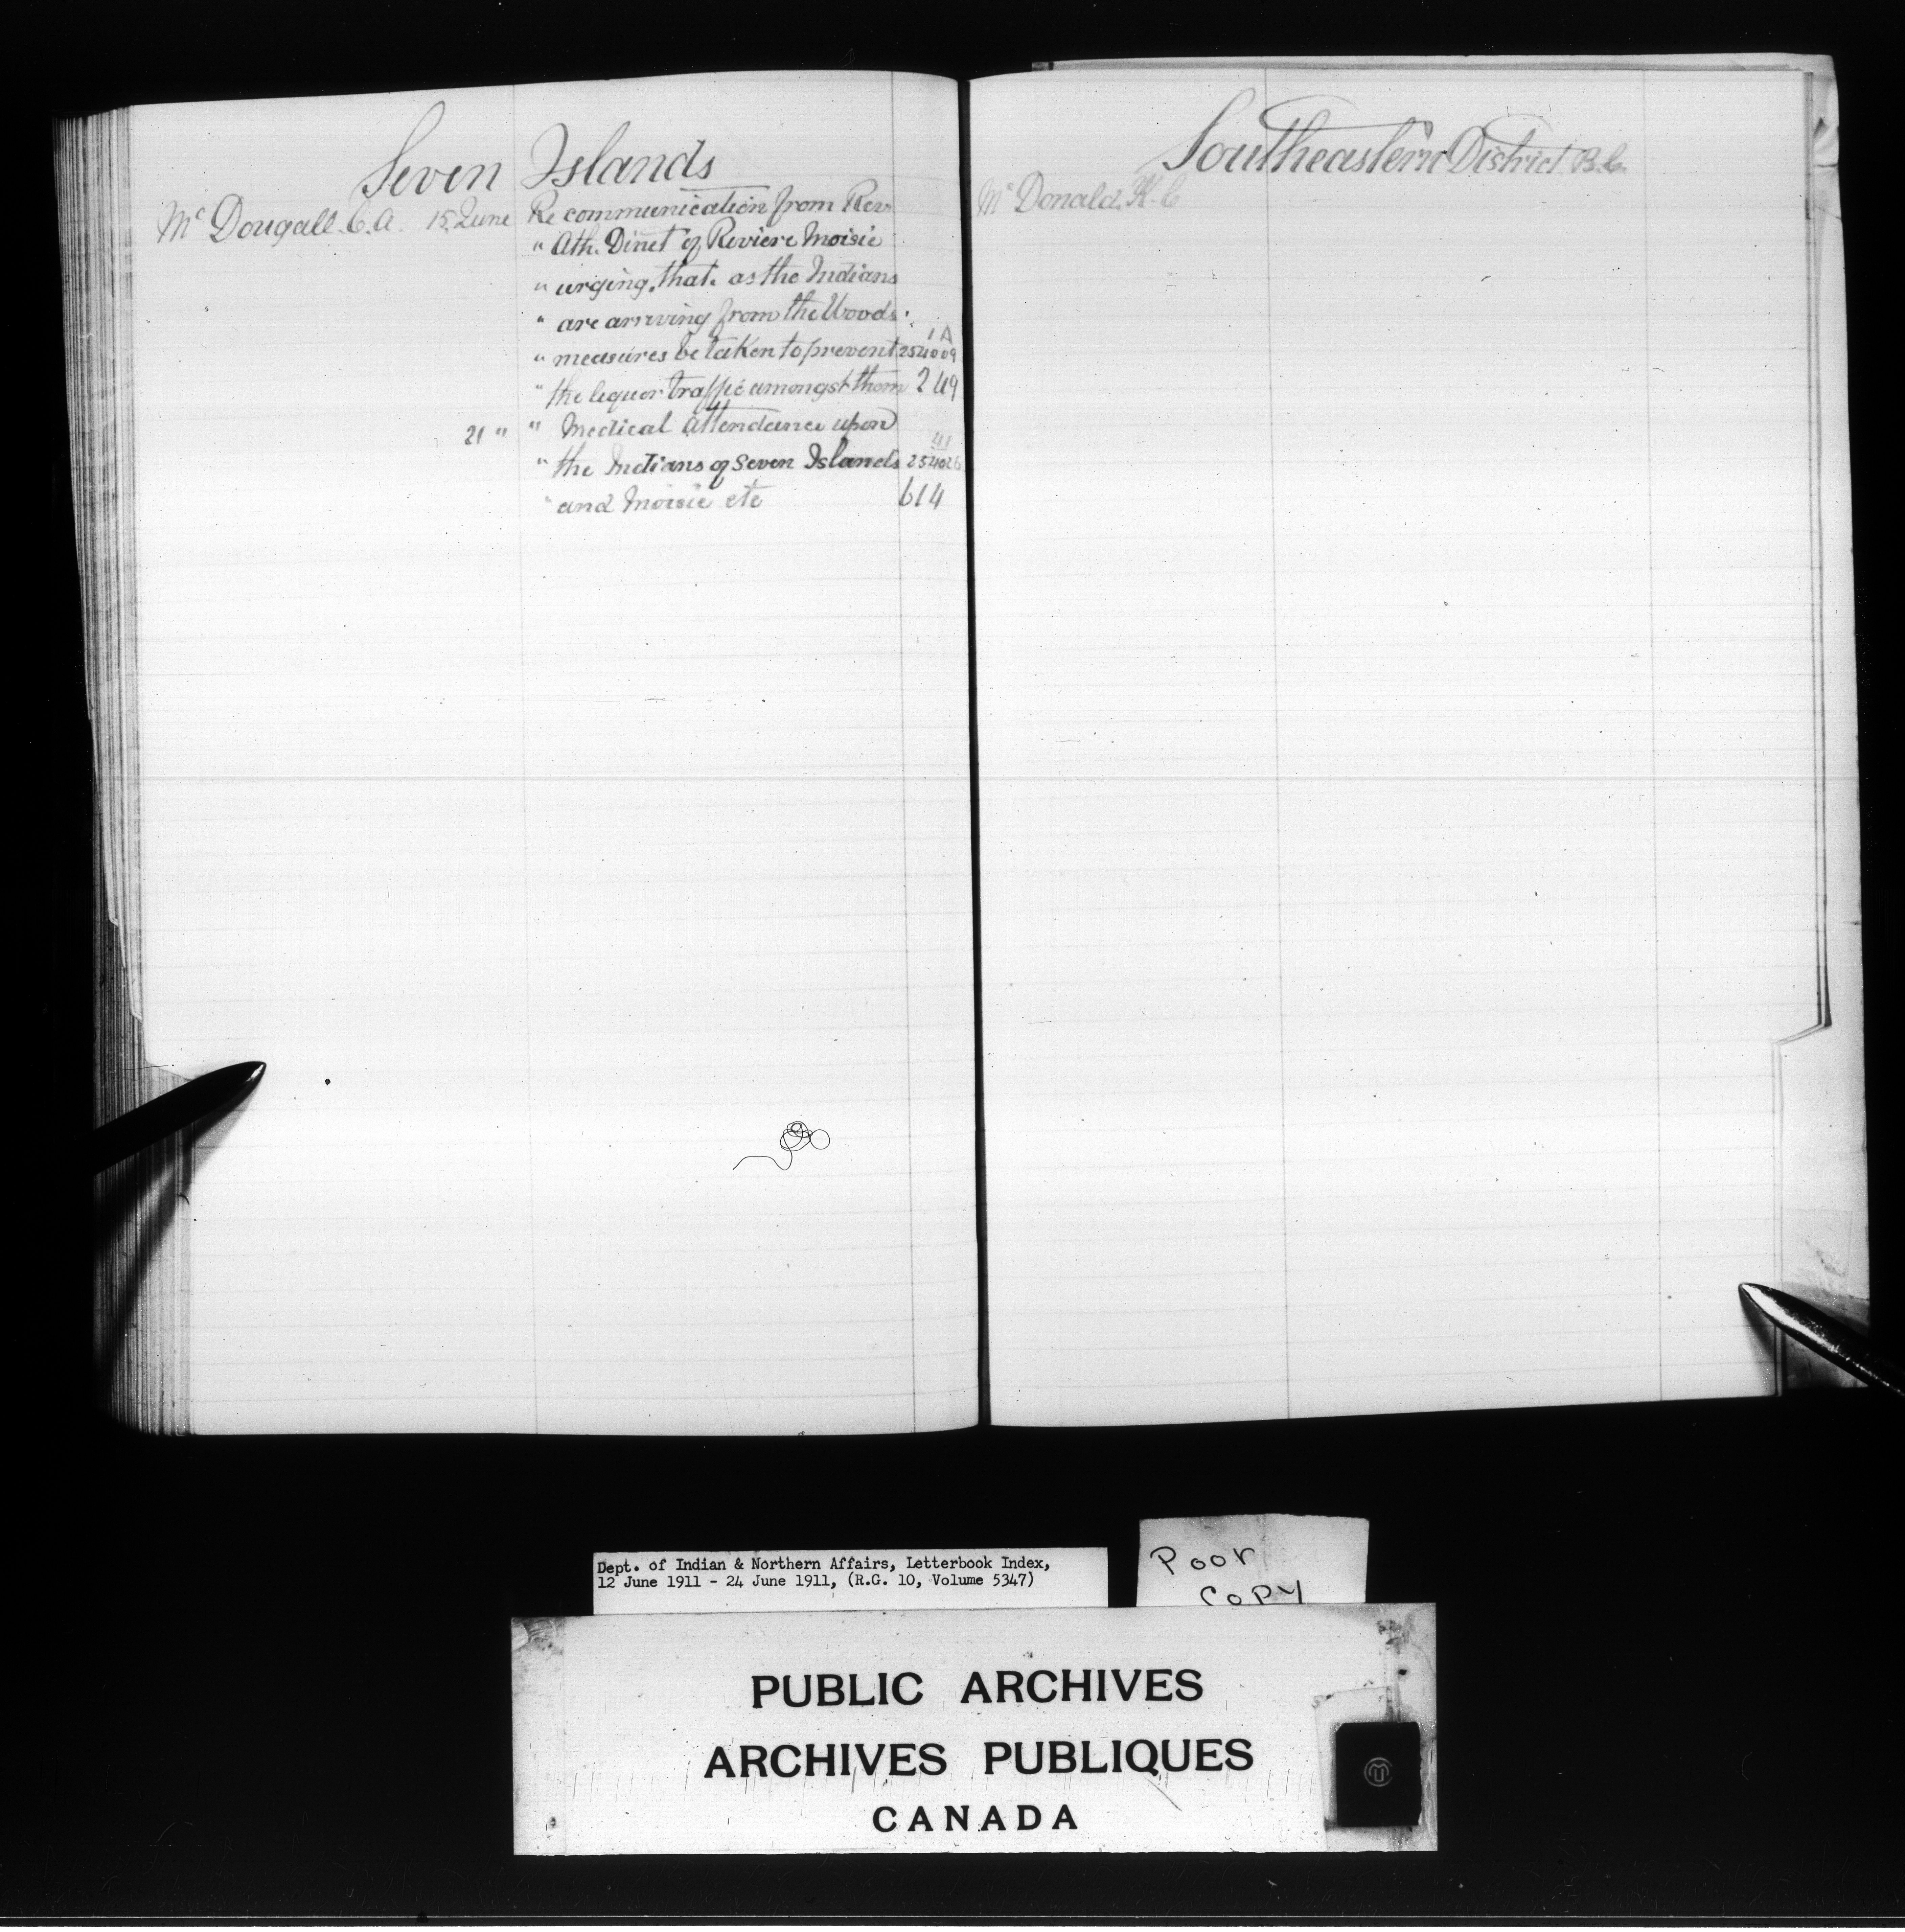 Seven Islands
McDougall. C.A. 15 June Re communication from Rev
" Ath. Dinet of Reviere Moisie
" urging, that, as the Indians
" are arriving from the Woods.
1A
" measures be taken to prevent 254009
" the liquor traffic amongst them 249
21 " " Medical Attendance upon
41
" the Indians of Seven Islands 254026
" and Moisie etc 614
Southeastern District B.C.
McDonald. H.C
Dept. of Indian & Northern Affairs, Letterbook Index,
12 June 1911 - 24 June 1911, (R.G. 10, Volume 5347)
Poor
Copy
PUBLIC ARCHIVES
ARCHIVES PUBLIQUES
CANADA